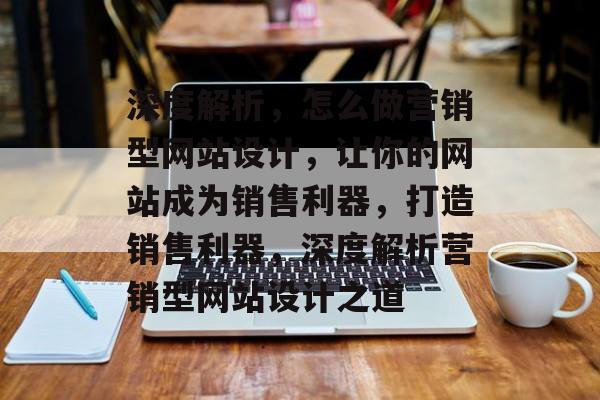 深度解析，怎么做营销
型网站设计，让你的网
站成为销售利器，打造
销售利器，深度解析营
销型网站设计之道